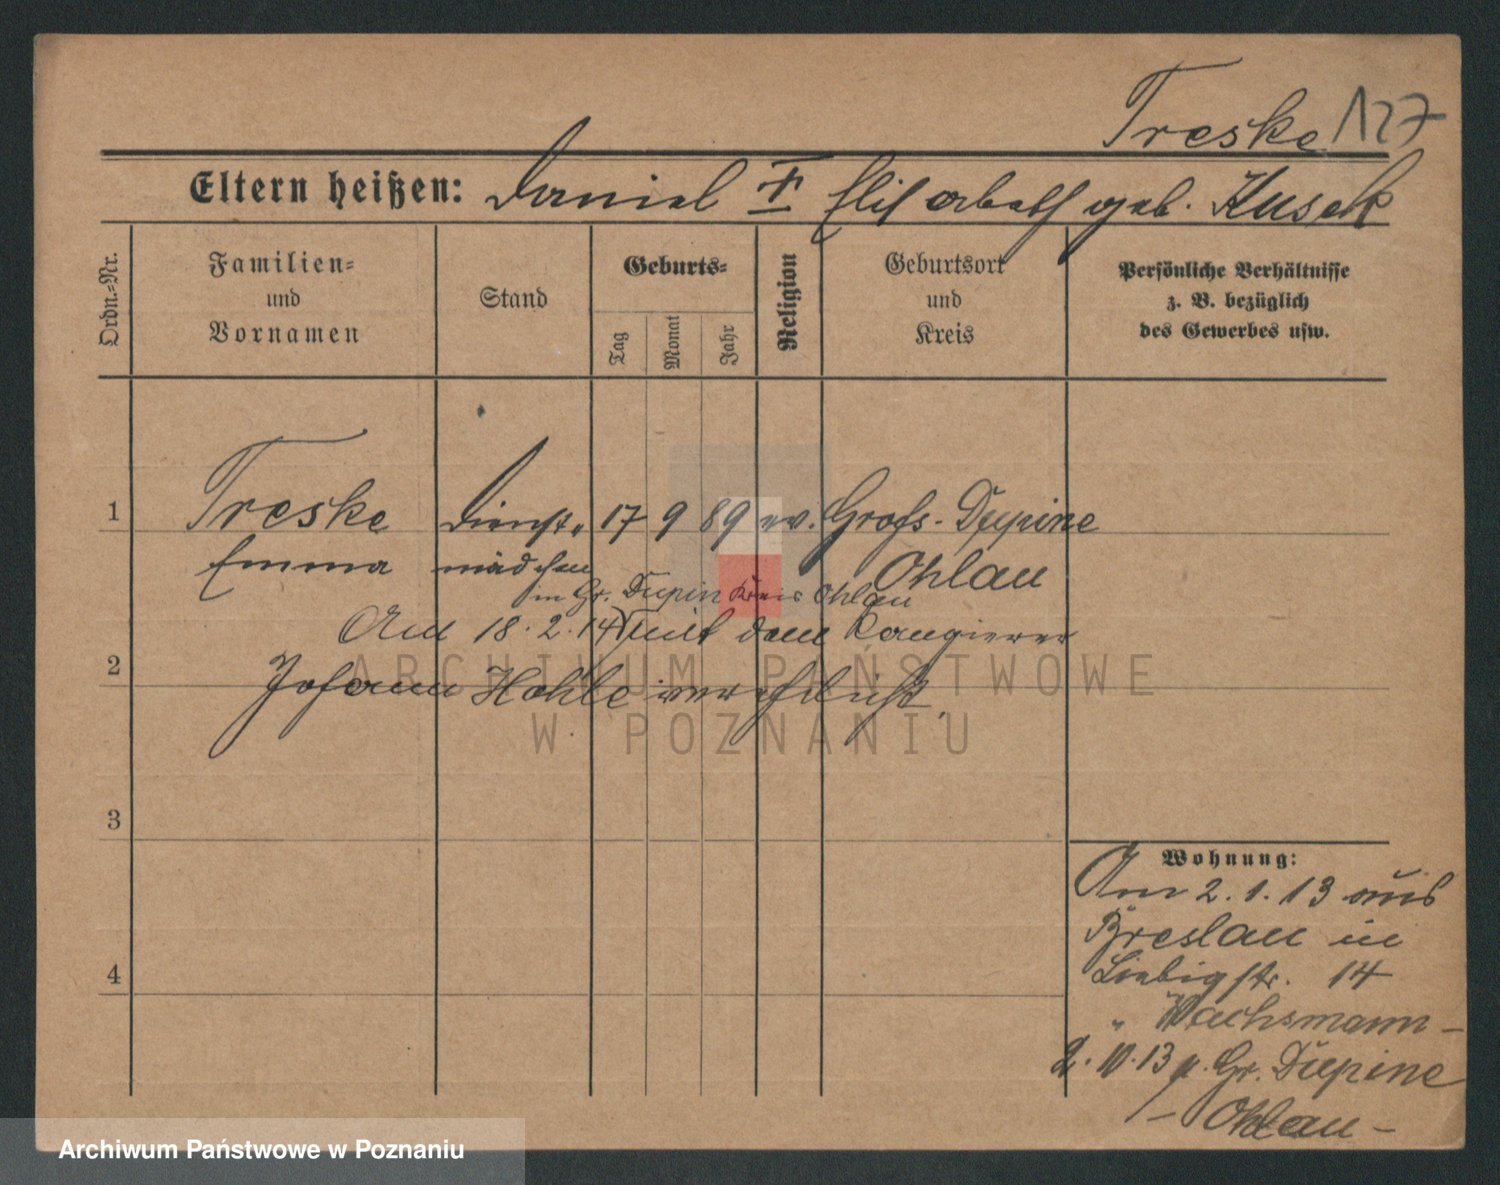 Treske 127
Eltern heißen: Daniel † Elisabeth geb. Kusch
Ordn.-Nr.
Familien-
und
Vornamen
Stand
Geburts-
Tag
Monat
Jahr
Religion
Geburtsort
und
Kreis
Persönliche Verhältnisse
z. B. bezüglich
des Gewerbes usw.
1 Treske Dienst- 17 9 89 ev. Groß-Düpine
Emma mädchen Ohlau
in Gr. Düpin Kreis Ohlau
Am 18.2.14 mit dem Rangierer
2
Johann Hohle verehelicht.
3
4
Wohnung:
Am 2.1.13 aus
Breslau in
Liebigstr. 14
" Wachsmann -
2.10.13 n. Gr. Düpine
- Ohlau -
ARCHIWUM PAŃSTWOWE
W POZNANIU
Archiwum Państwowe w Poznaniu